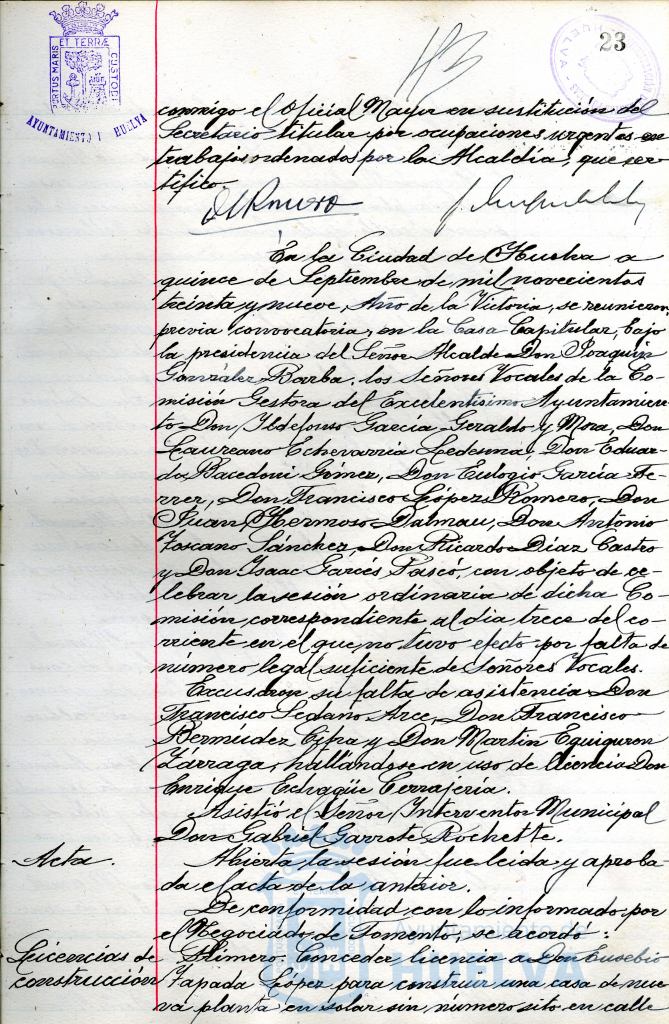 23
PORTUS MARIS ET TERRÆ CUSTODIA
AYUNTAMIENTO HUELVA
conmigo el Oficial Mayor en sustitución del
Secretario titular por ocupaciones urgentes en
trabajos ordenados por la Alcaldía, que cer-
tifico.
En la Ciudad de Huelva a
quince de Septiembre de mil novecientos
treinta y nueve, Año de la Victoria, se reunieron,
previa convocatoria, en la Casa Capitular, bajo
la presidencia del Señor Alcalde Don Joaquin
González Barba, los Señores Vocales de la Co-
misión Gestora del Excelentísimo Ayuntamien-
to Don Ildefonso Garcia Geraldo y Mora, Don
Laureano Echevarria Ledesma, Don Eduar-
do Bacedoni Gómez, Don Eulogio García He-
rrer, Don Francisco López Romero, Don
Juan Hermoso Dalmau, Don Antonio
Toscano Sánchez, Don Ricardo Diaz Castro
y Don Isaac Garcés Pascó, con objeto de ce-
lebrar la sesión ordinaria de dicha Co-
misión, correspondiente al dia trece del co-
rriente en el que no tuvo efecto por falta de
número legal suficiente de Señores Vocales.
Excusaron su falta de asistencia Don
Francisco Sedano Arce, Don Francisco
Bermudez Cifra y Don Martin Eguiguren
Zárraga, hallándose en uso de licencia Don
Enrique Echagüe Cerrajería.
Asistió el Señor Interventor Municipal
Don Gabriel Garrote Rochette.
Acta. Abierta la sesión fue leida y aproba-
da el acta de la anterior.
De conformidad con lo informado por
el Negociado de Fomento, se acordó:
Licencias de Primero: Conceder licencia a Don Eusebio
construcción Tapada López para construir una casa de nue-
va planta en solar sin número sito en calle
Ayuntamiento de
HUELVA